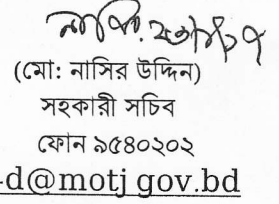 (মো: নাসির উদ্দিন)
সহকারী সচিব
ফোন ৯৫৪০২০২
d@motj gov.bd